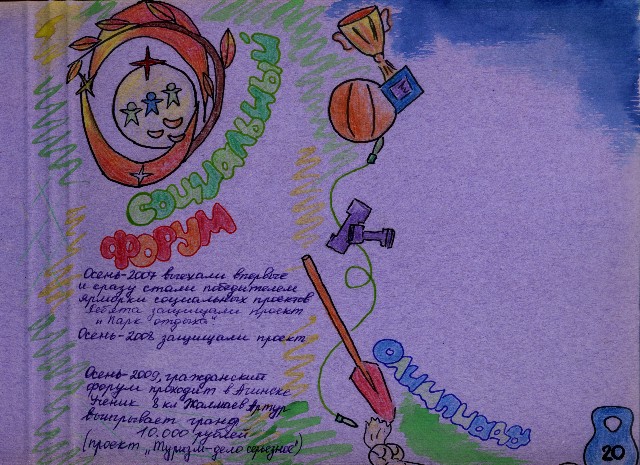 Социальный
форум
Осень-2007 выехали впервые
и сразу стали победителем
ярмарки социальных проектов
Ребята защищали проект
"Парк отдыха"
Осень-2008 защищали проект
Осень-2009, гражданский
форум проходит в Ачинске
Ученик 8 кл Жалмаев Артур
выигрывает гранд
10.000 рублей
(проект "Туризм-дело серьезное")
Олимпиады
20